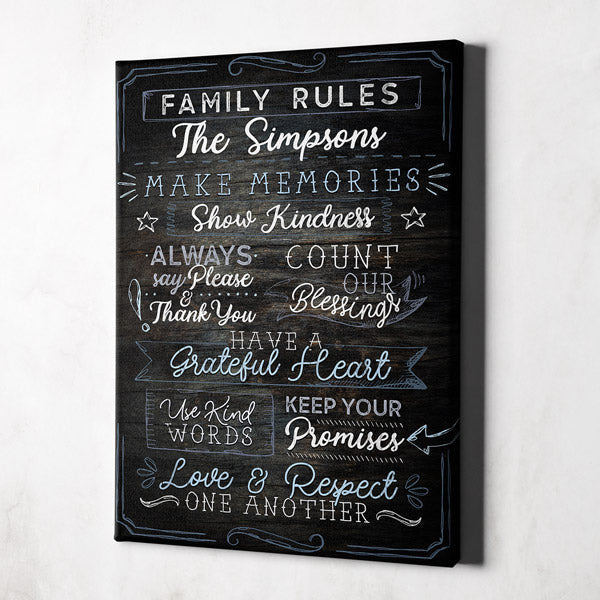 FAMILY RULES
The Simpsons
MAKE MEMORIES
Show Kindness
ALWAYS
say Please
&
Thank You
COUNT
OUR
Blessings
HAVE A
Grateful Heart
Use Kind
WORDS
KEEP YOUR
Promises
Love & Respect
ONE ANOTHER